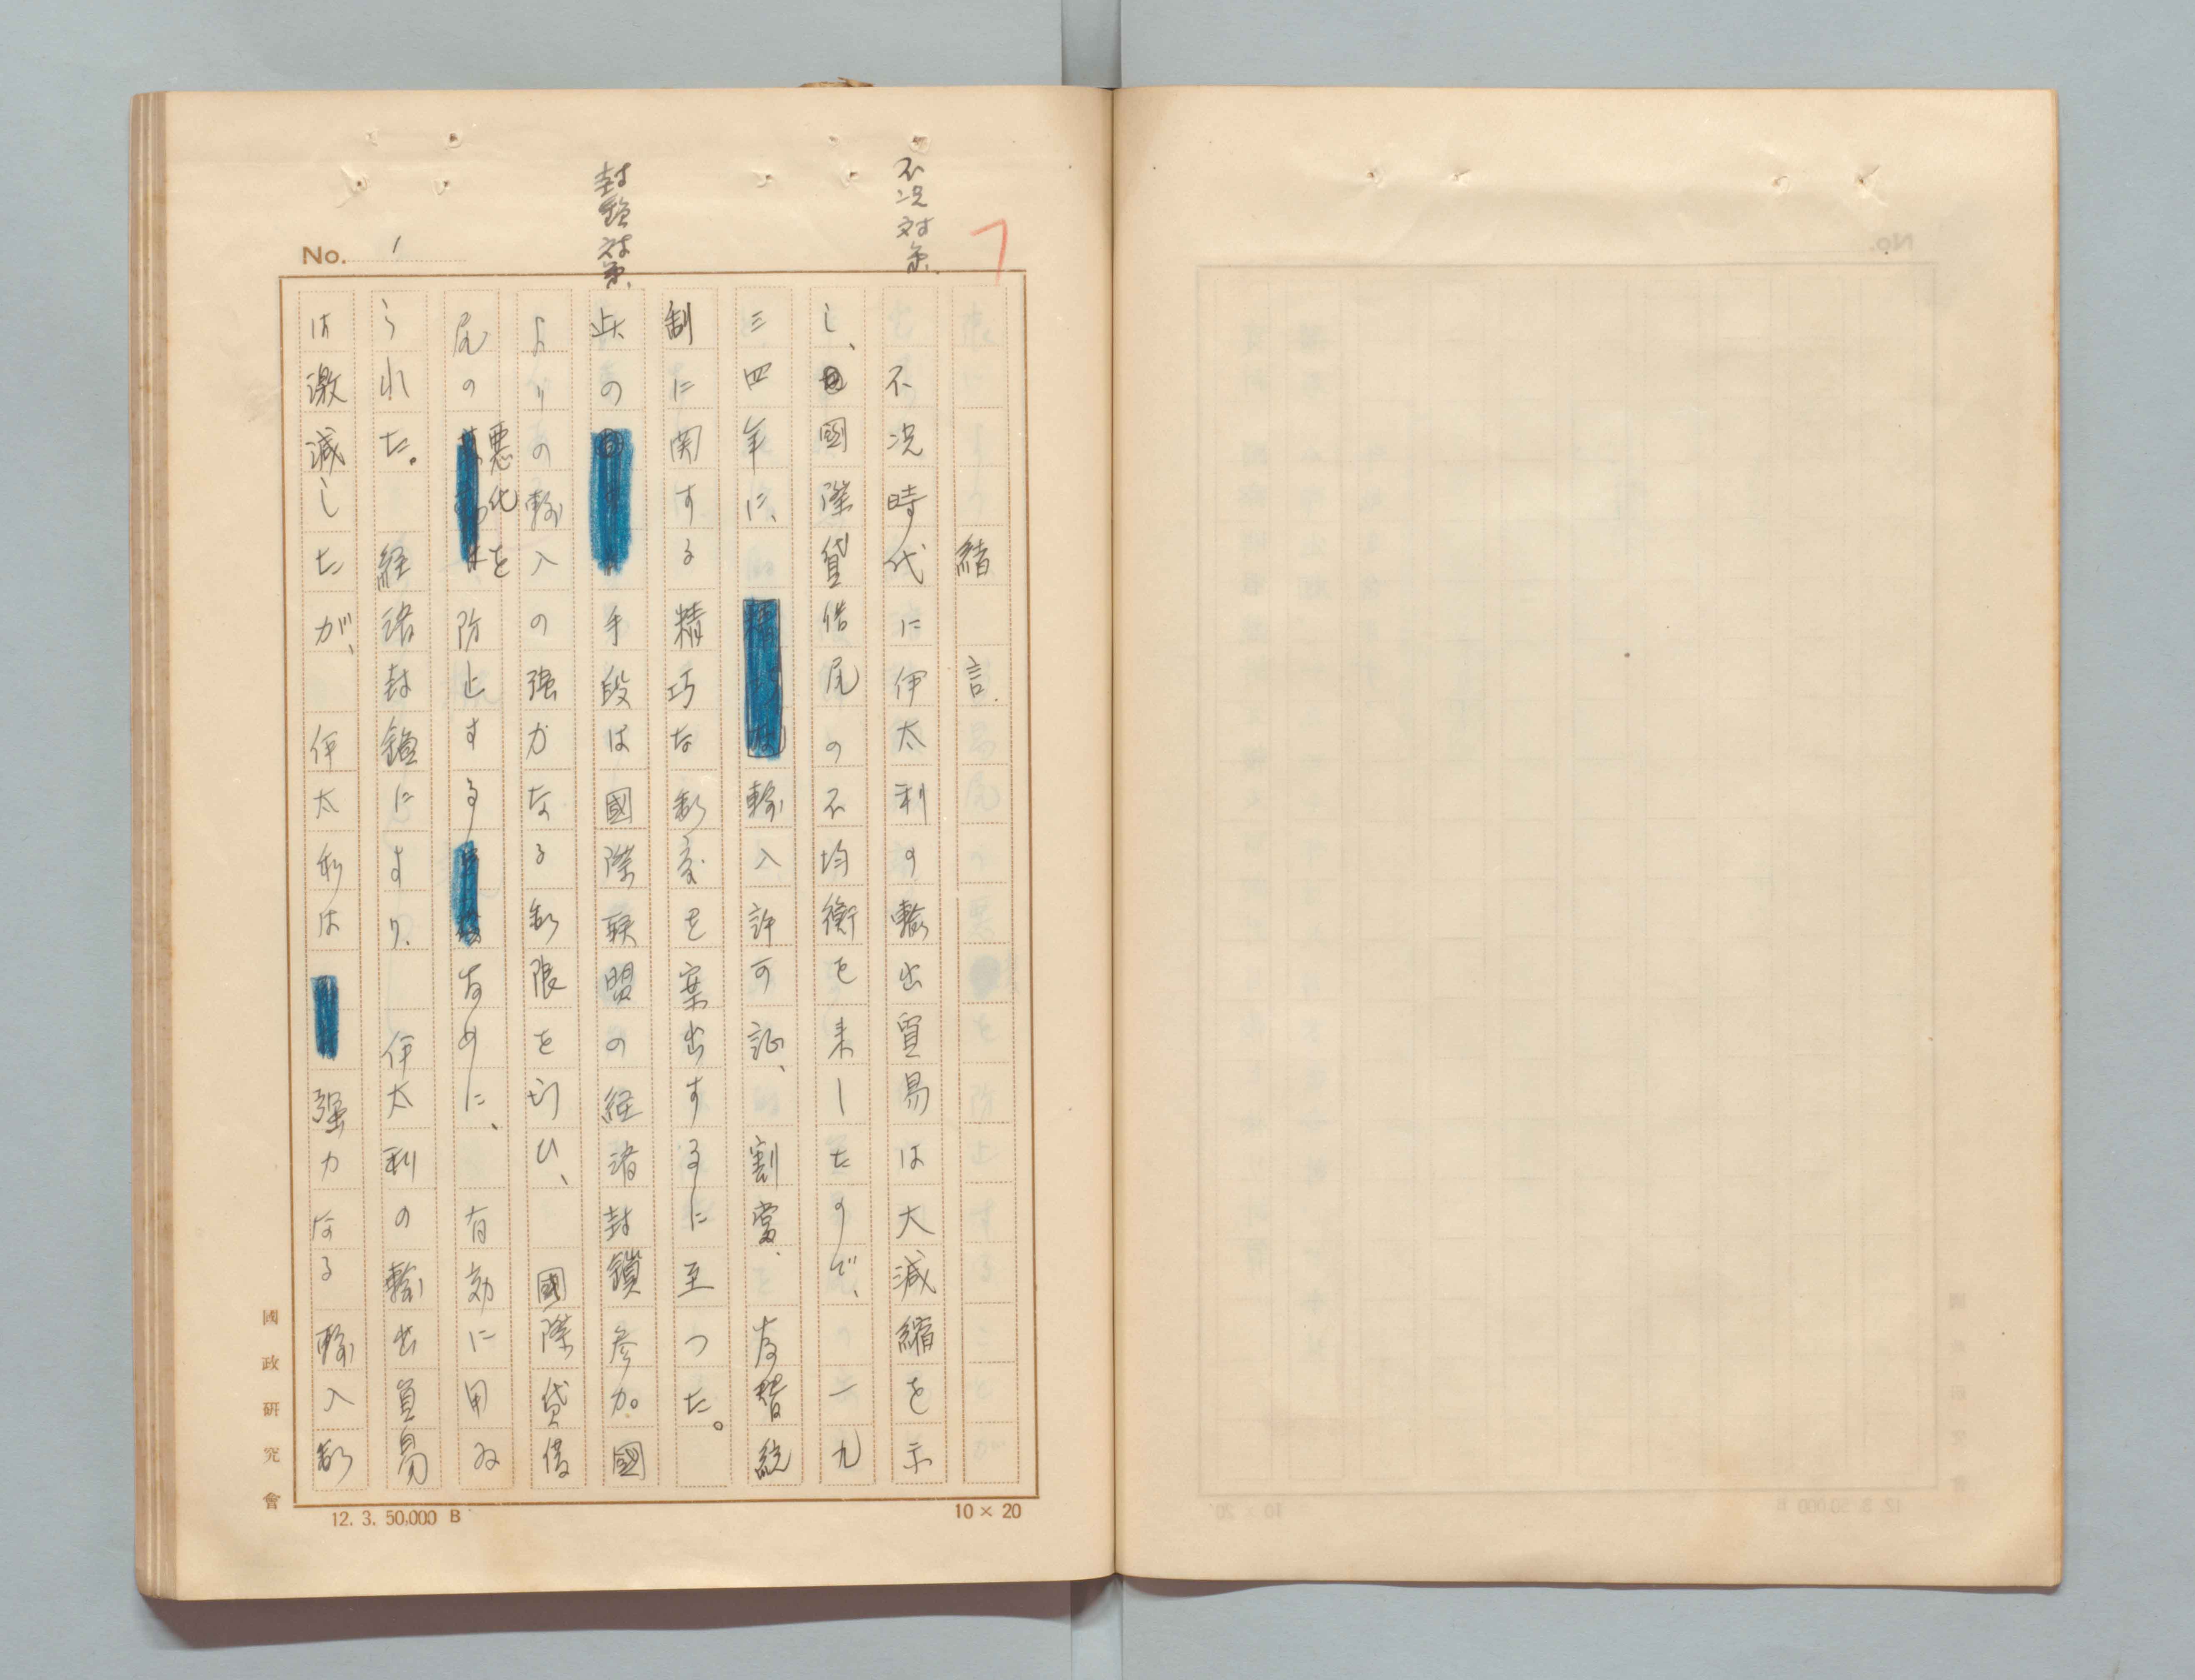 不況対策.
封鎖対策.
No. 1
結言.
不況時代に伊太利の輸出貿易は大減縮を示
し、國際貸借尻の不均衡を来したので、一九
三四年に、輸入許可証、割當、為替統
制に関する精巧な制度を案出するに至つた。
此の手段は國際聯盟の経済封鎖参加國
よりの輸入の强力なる制限を行ひ、國際貸借
尻の悪化を防止するために、有効に用ゐ
られた。経済封鎖により、伊太利の輸出貿易
は激減したが、伊太利は强力なる輸入制
國政研究會
12. 3. 50,000 B
10 × 20